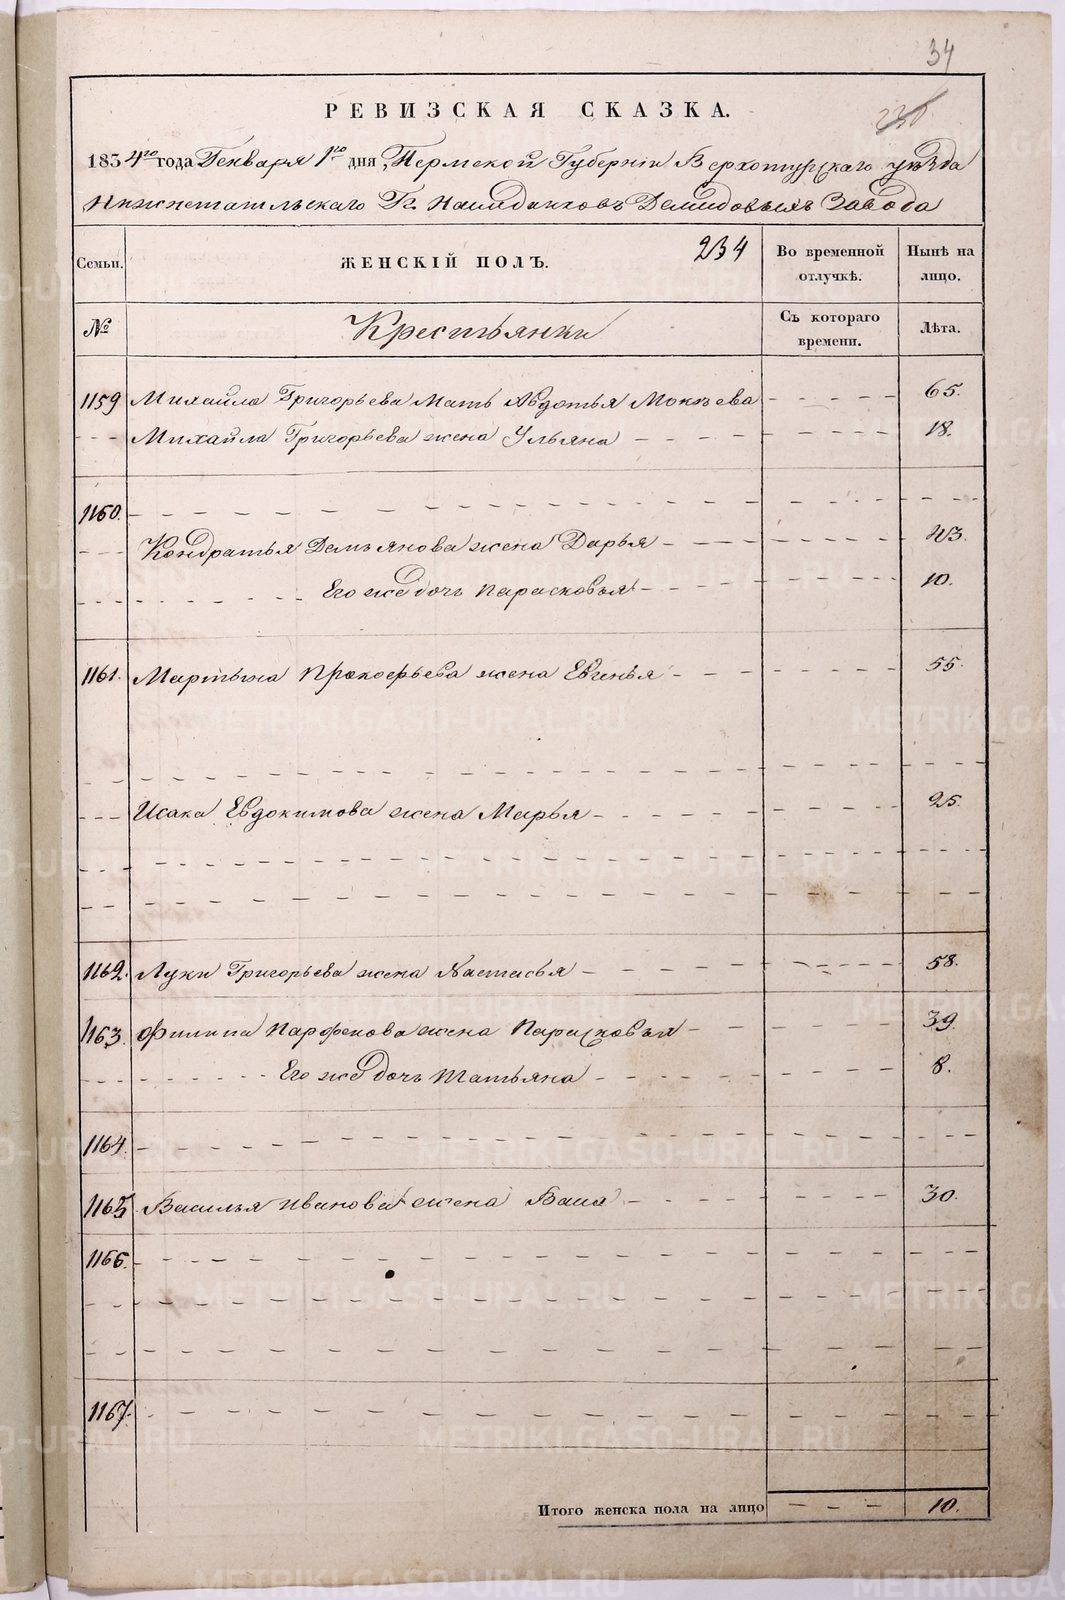 34
РЕВИЗСКАЯ СКАЗКА.
236
1834го года Генваря 1го дня, Пермской Губерніи Верхотурскаго уѣзда
Нижнетагильскаго Гг. Наслѣдниковъ Демидовыхъ Завода
Семьи. ЖЕНСКІЙ ПОЛЪ. 234 Во временной отлучкѣ. Нынѣ на лицо.
№ Крестьянки Съ котораго времени. Лѣта.
1159 Михайла Григорьева мать Авдотья Мокѣева 65.
Михайла Григорьева жена Ульяна 18.
1160.
Кондратья Демьянова жена Дарья 43.
Его же дочь Парасковья 10.
1161. Мартына Прокофьева жена Евгенья 55.
Исака Евдокимова жена Марья 25.
1162. Луки Григорьева жена Настасья 58.
1163. Филипа Парфенова жена Парасковья 39.
Его же дочь Татьяна 8.
1164.
1165. Василья Иванова жена Васа 30.
1166.
1167.
Итого женска пола на лицо 10.
METRIKI.GASO-URAL.RU